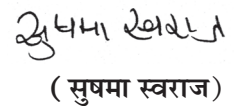 सुषमा स्वराज
( सुषमा स्वराज)